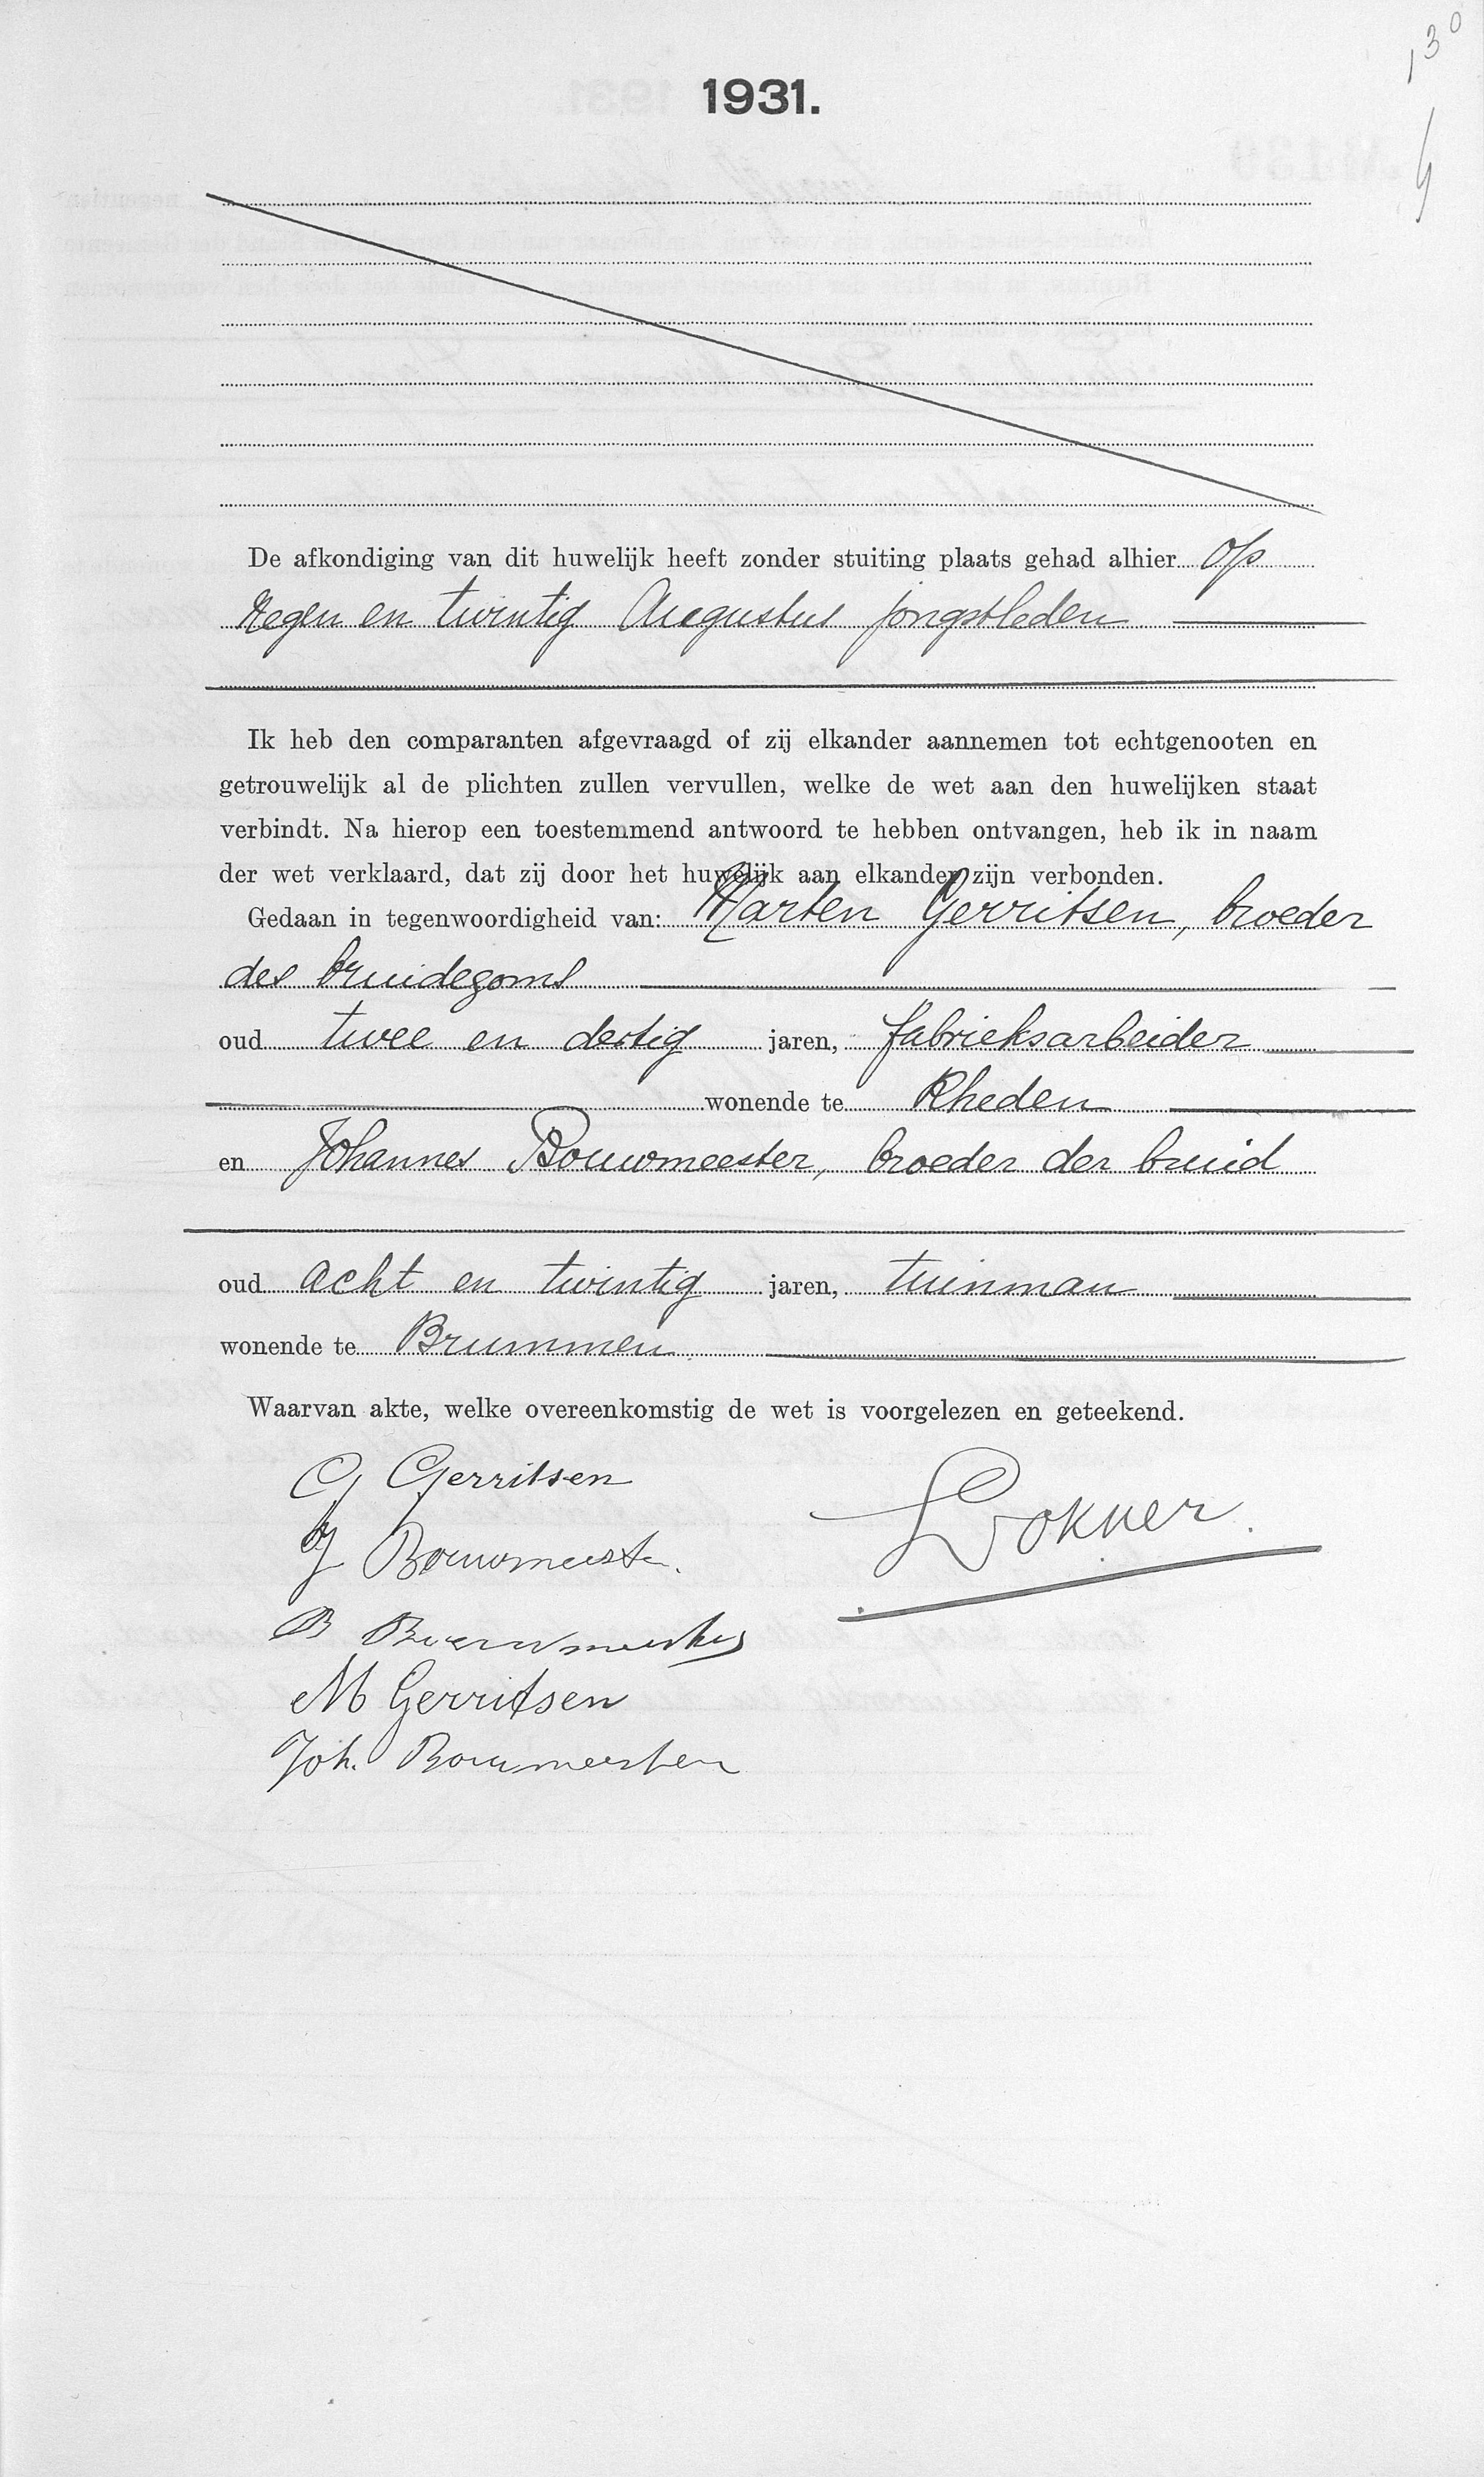 130
1931.
De afkondiging van dit huwelijk heeft zonder stuiting plaats gehad alhier op
negen en twintig Augustus jongstleden
Ik heb den comparanten afgevraagd of zij elkander aannemen tot echtgenooten en
getrouwelijk al de plichten zullen vervullen, welke de wet aan den huwelijken staat
verbindt. Na hierop een toestemmend antwoord te hebben ontvangen, heb ik in naam
der wet verklaard, dat zij door het huwelijk aan elkander zijn verbonden.
Gedaan in tegenwoordigheid van: Marten Gerritsen, broeder
des bruidegoms
oud twee en dertig jaren, fabrieksarbeider
wonende te Rheden
en Johannes Bouwmeester, broeder der bruid
oud acht en twintig jaren, tuinman
wonende te Brummen
Waarvan akte, welke overeenkomstig de wet is voorgelezen en geteekend.
G Gerritsen
J Bouwmeester.
B Bouwmeester
M Gerritsen
Joh. Bouwmeester